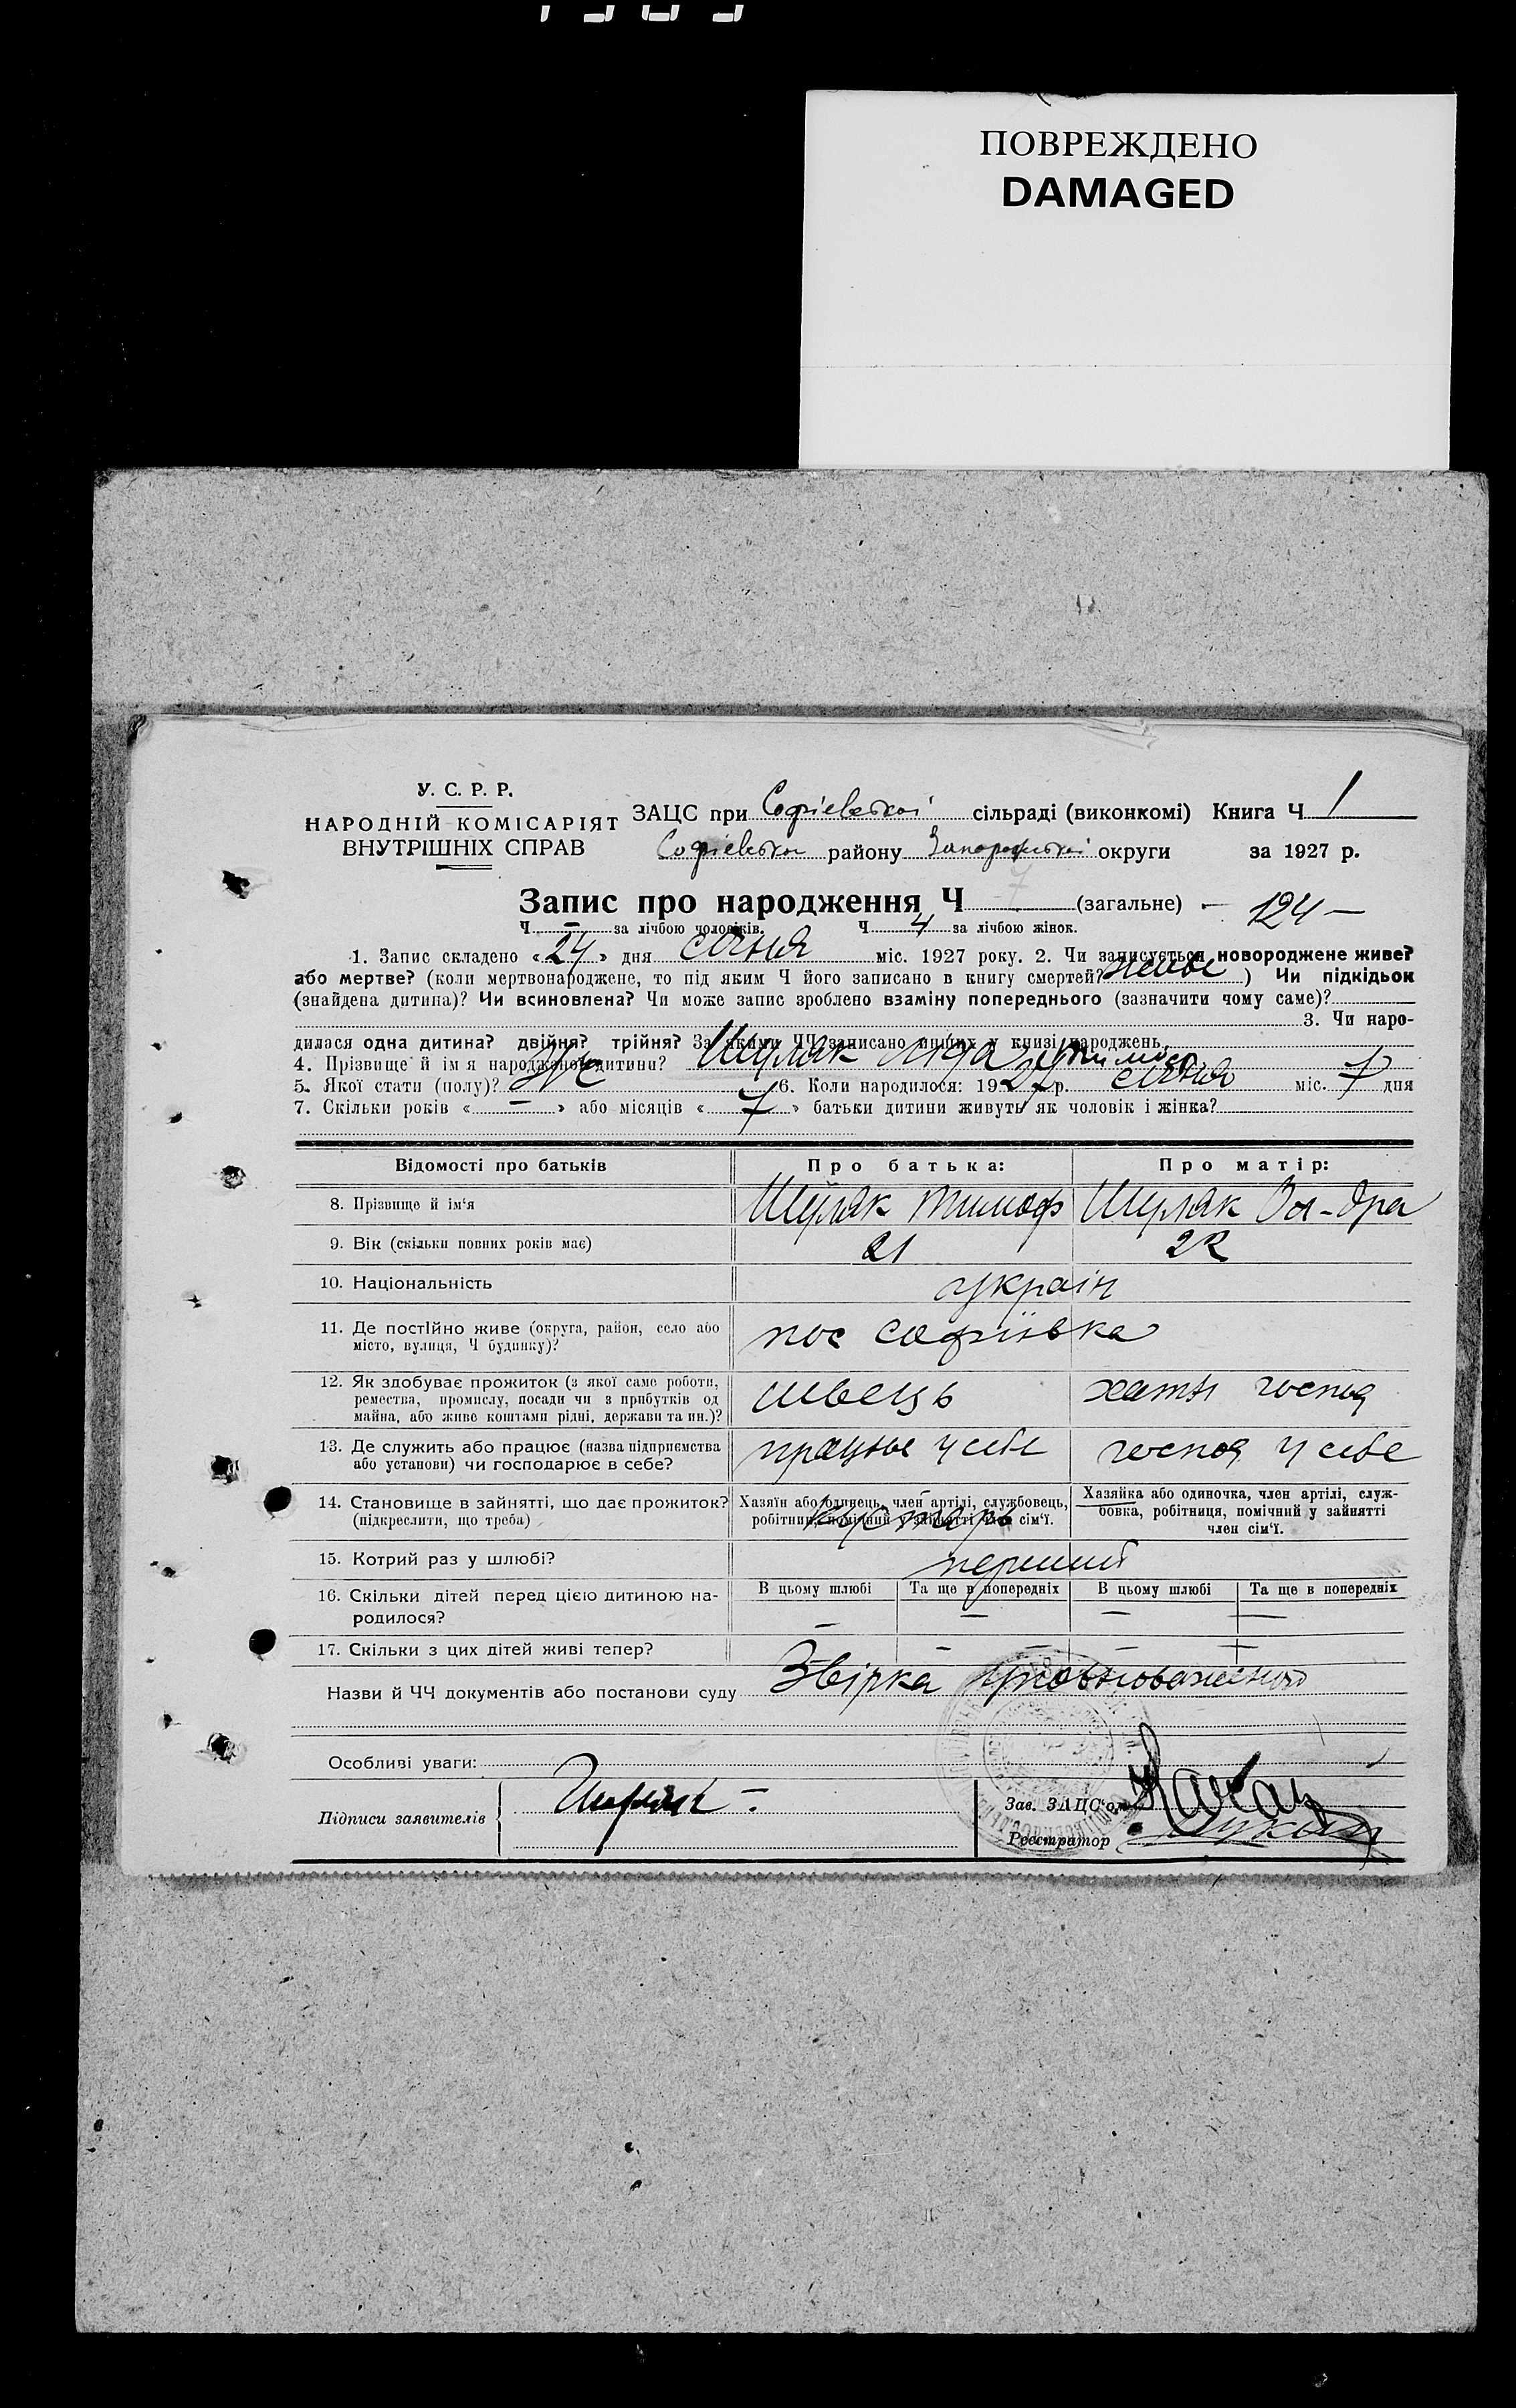 ПОВРЕЖДЕНО
DAMAGED
У. С. Р. Р.
НАРОДНІЙ КОМІСАРІЯТ
ВНУТРІШНІХ СПРАВ
ЗАЦС при Софієвській сільраді (виконкомі) Книга Ч 1
Софієвської району Запорізької округи за 1927 р.
Запис про народження Ч 7 (загальне) — 124 —
Ч — за лічбою чоловіків. Ч 4 за лічбою жінок.
1. Запис складено « 24 » дня січня міс. 1927 року. 2. Чи записується новороджене живе?
або мертве? (коли мертвонароджене, то під яким Ч його записано в книгу смертей? живе ) Чи підкідьок
(знайдена дитина)? Чи всиновлена? Чи може запис зроблено взаміну попереднього (зазначити чому саме)?
3. Чи наро-
дилася одна дитина? двійня? трійня? За якими ЧЧ записано инших у книзі народжень.
4. Прізвище й ім я народженої дитини? Шуляк Ліда
5. Якої стати (полу)? 6. Коли народилося: 1927 р. січня міс. 7 дня
7. Скільки років « — » або місяців « 7 » батьки дитини живуть як чоловік і жінка?
Відомості про батьків
Про батька:
Про матір:
8. Прізвище й ім'я
Шуляк Тимоф
Шуляк
9. Вік (скільки повних років має)
21
22
10. Національність
україн
11. Де постійно живе (округа, район, село або
місто, вулиця, Ч будинку)?
пос Софіївка
12. Як здобуває прожиток (з якої саме роботи,
ремества, промислу, посади чи з прибутків од
майна, або живе коштами рідні, держави та ин.)?
швець
хатн господ
13. Де служить або працює (назва підприємства
або установи) чи господарює в себе?
працює у себе
господ у себе
14. Становище в зайнятті, що дає прожиток?
(підкреслити, що треба)
Хазяїн або одинець, член артілі, службовець,
робітник, помічний у зайнятті член сім'ї.
кустарь
Хазяйка або одиночка, член артілі, служ-
бовка, робітниця, помічний у зайнятті
член сім'ї.
15. Котрий раз у шлюбі?
перший
16. Скільки дітей перед цією дитиною на-
родилося?
В цьому шлюбі
Та ще в попередніх
В цьому шлюбі
Та ще в попередніх
— — — —
17. Скільки з цих дітей живі тепер?
— — — —
Назви й ЧЧ документів або постанови суду Звірка
Особливі уваги:
Підписи заявителів Шуляк
Зав. ЗАЦС'ом
Реєстратор